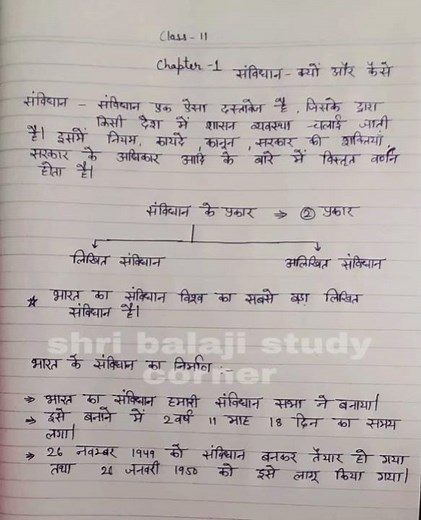 Class-11
Chapter-1 संविधान - क्यों और कैसे
संविधान - संविधान एक ऐसा दस्तावेज है, जिसके द्वारा
किसी देश में शासन व्यवस्था चलाई जाती
है। इसमें नियम, कायदे, कानून, सरकार की शक्तियाँ,
सरकार के अधिकार आदि के बारे में विस्तृत वर्णन
होता है।
संविधान के प्रकार ⇒ ② प्रकार
लिखित संविधान अलिखित संविधान
★ भारत का संविधान विश्व का सबसे बड़ा लिखित
संविधान है।
shri balaji study
corner
भारत के संविधान का निर्माण :-
⇒ भारत का संविधान हमारी संविधान सभा ने बनाया।
⇒ इसे बनाने में 2 वर्ष 11 माह 18 दिन का समय
लगा।
⇒ 26 नवम्बर 1949 को संविधान बनकर तैयार हो गया
तथा 26 जनवरी 1950 को इसे लागू किया गया।